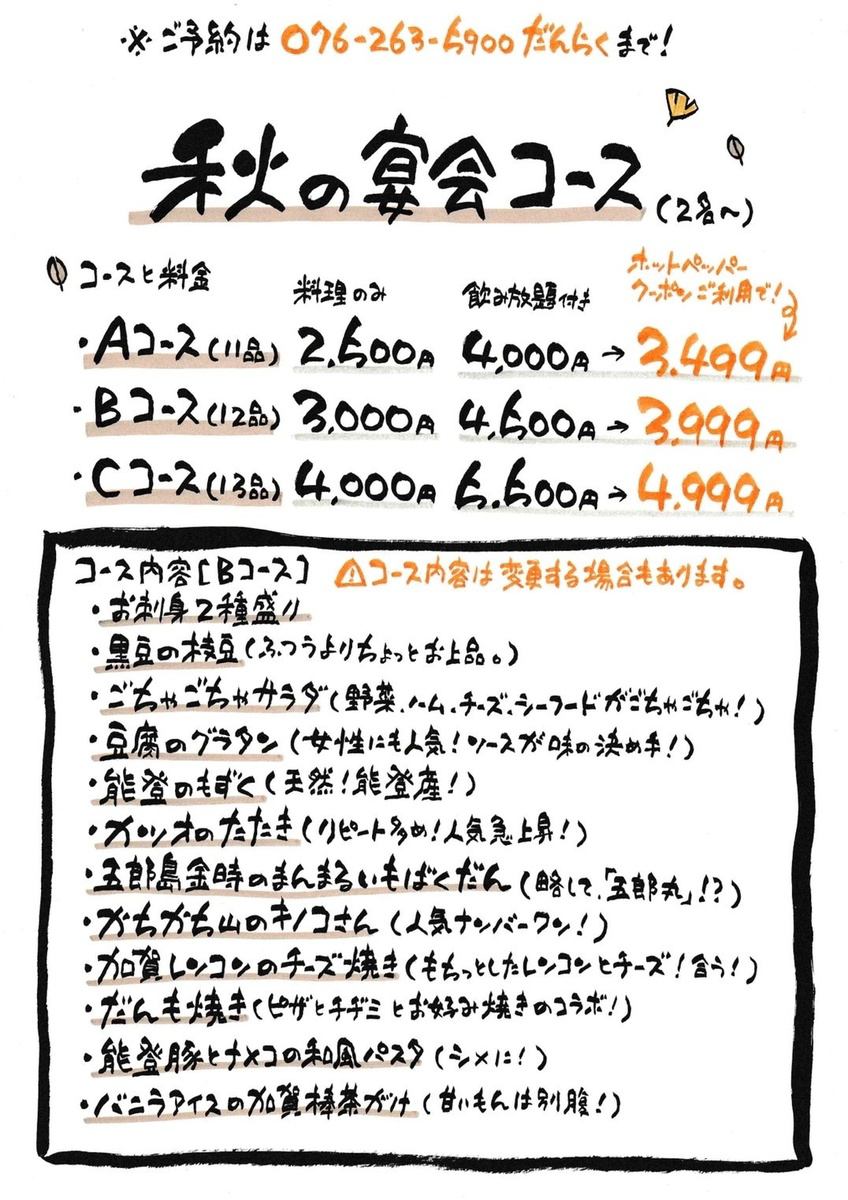 ※ご予約は 076-263-5900 だんらくまで!
秋の宴会コース(2名〜)
コースと料金 料理のみ 飲み放題付き ホットペッパークーポンご利用で!
・Aコース(11品) 2,500円 4,000円→3,499円
・Bコース(12品) 3,000円 4,500円→3,999円
・Cコース(13品) 4,000円 5,500円→4,999円
コース内容[Bコース] ⚠コース内容は変更する場合もあります。
・お刺身2種盛り
・黒豆の枝豆(ふつうよりちょっとお上品。)
・ごちゃごちゃサラダ(野菜、ハム、チーズ、シーフードがごちゃごちゃ!)
・豆腐のグラタン(女性にも人気!ソースが味の決め手!)
・能登のもずく(天然!能登産!)
・カツオのたたき(リピート多め!人気急上昇!)
・五郎島金時のまんまるいもばくだん(略して、「五郎丸」!?)
・かちかち山のキノコさん(人気ナンバーワン!)
・加賀レンコンのチーズ焼き(もちっとしたレンコンとチーズ!合う!)
・だんも焼き(ピザとチヂミとお好み焼きのコラボ!)
・能登豚とナメコの和風パスタ(シメに!)
・バニラアイスの加賀棒茶がけ(甘いもんは別腹!)